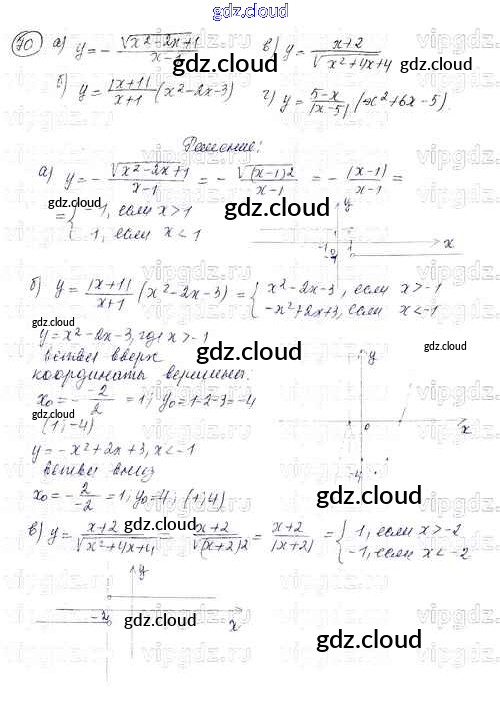 gdz.cloud
gdz.cloud
70 а) y = - √(x²-2x+1)/(x-1) в) y = (x+2)/√(x²+4x+4)
gdz.cloud gdz.cloud
б) y = |x+1|/(x+1) (x²-2x-3) г) y = (5-x)/|x-5| (x²+6x-5).
Решение:
а) y = - √(x²-2x+1)/(x-1) = - √((x-1)²)/(x-1) = - |x-1|/(x-1) =
= { -1, если x>1
1, если x<1
gdz.cloud
y
-1
x
б) y = |x+1|/(x+1) (x²-2x-3) = { x²-2x-3, если x>-1
-x²+2x+3, если x<-1
gdz.cloud
y = x²-2x-3, где x>-1
ветви вверх
gdz.cloud
координаты вершины:
x₀ = - 2/2 = 1; y₀=1-2-3=-4
gdz.cloud
(1; -4)
y
0
x
-4
y = -x²+2x+3, x<-1
ветви вниз
x₀ = - 2/-2 = 1; y₀=4; (1; 4)
gdz.cloud
в) y = (x+2)/√(x²+4x+4) = (x+2)/√((x+2)²) = (x+2)/|x+2| = { 1, если x>-2
-1, если x<-2
gdz.cloud
y
-2
x
gdz.cloud
gdz.cloud